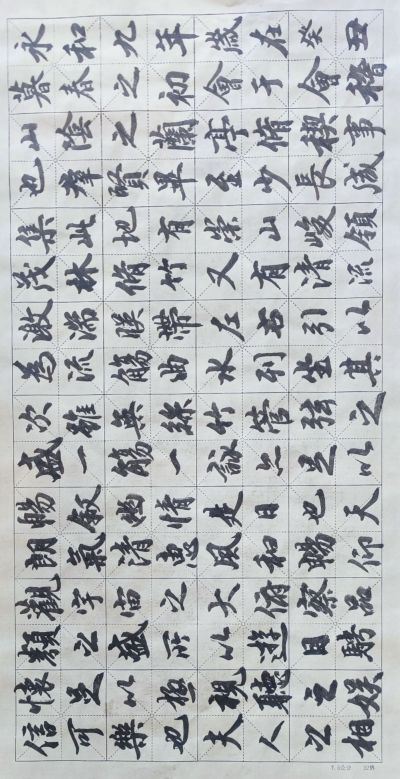 永和九年歲在癸丑
暮春之初會于會稽
山陰之蘭亭脩禊事
也羣賢畢至少長咸
集此地有崇山峻領
茂林脩竹又有清流
激湍暎帶左右引以
為流觴曲水列坐其
次雖無絲竹管弦之
盛一觴一詠亦足以
暢敘幽情是日也天
朗氣清惠風和暢仰
觀宇宙之大俯察品
類之盛所以遊目騁
懷足以極視聽之娛
信可樂也夫人之相